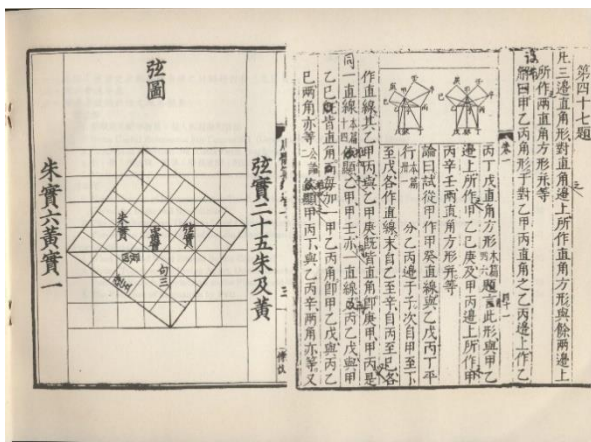 第四十七題
凡三邊直角形對直角邊上所作直角方形與餘兩邊上
所作兩直角方形并等
解曰甲乙丙角形于對乙甲丙直角之乙丙邊上作乙
丙丁戊直角方形本篇四六題言此形與甲乙
邊上所作甲乙己庚及甲丙邊上所作甲
丙辛壬兩直角方形并等
論曰試從甲作甲癸直線與乙戊丙丁平
行本篇卅一分乙丙邊于子次自甲至丁
至戊各作直線末自乙至辛自丙至己各
作直線其乙甲丙與乙甲庚既皆直角即庚甲甲丙是
同一直線本篇十四依顯乙甲甲壬亦一直線
丙乙戊與甲
乙己既皆直角而每加
甲乙丙角即甲乙戊與丙乙
己兩角亦等公論二依顯甲丙丁與乙丙辛兩角亦等又
卷一
弦圖
弦實二十五朱及黃
朱實六黃實一
朱實
中黃實
弦實
句三